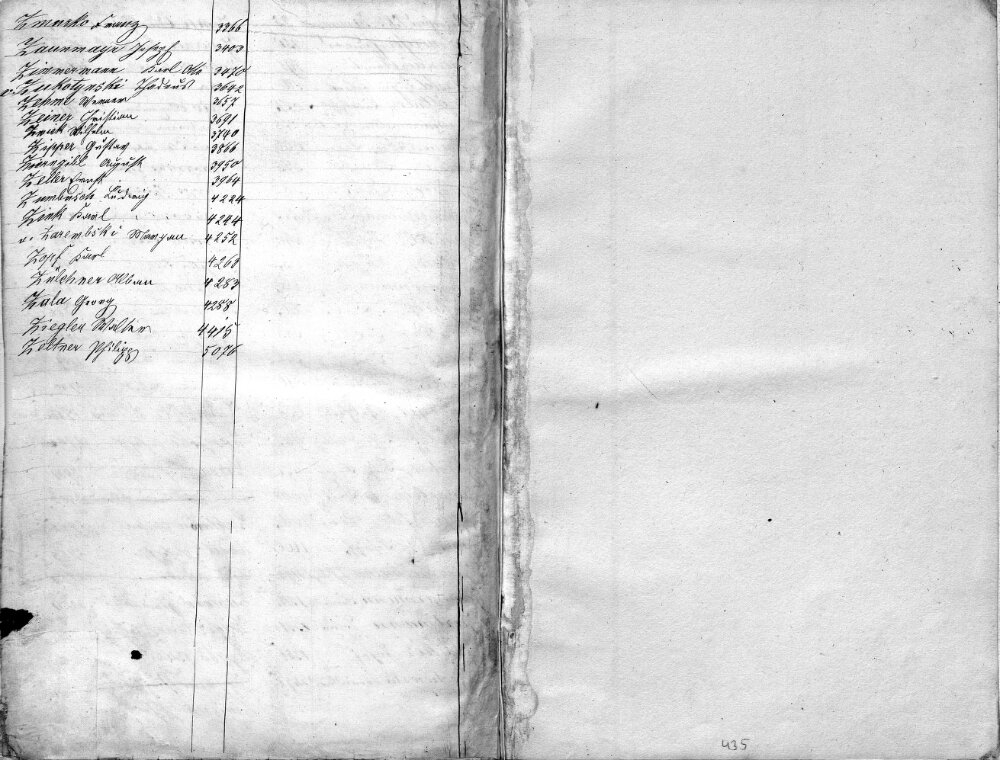 Zmurko Franz 3366
Zaunmayr Joseph 3403
Zimmermann Karl Otto 3470
v. Zukotynski Thadeus 3642
Zehme Werner 3657
Zeiner Christian 3691
Wilhelm 3740
Zipper Gustav 3866
August 3950
Zeller Ernst 3964
Zumbusch Ludwig 4224
Zink Karl 4244
v. Zarembski Maryan 4252
Zopf Karl 4260
Zülchner Alban 4283
Zula Georg 4288
Ziegler Walter 4415
Zeltner Philipp 5076
435